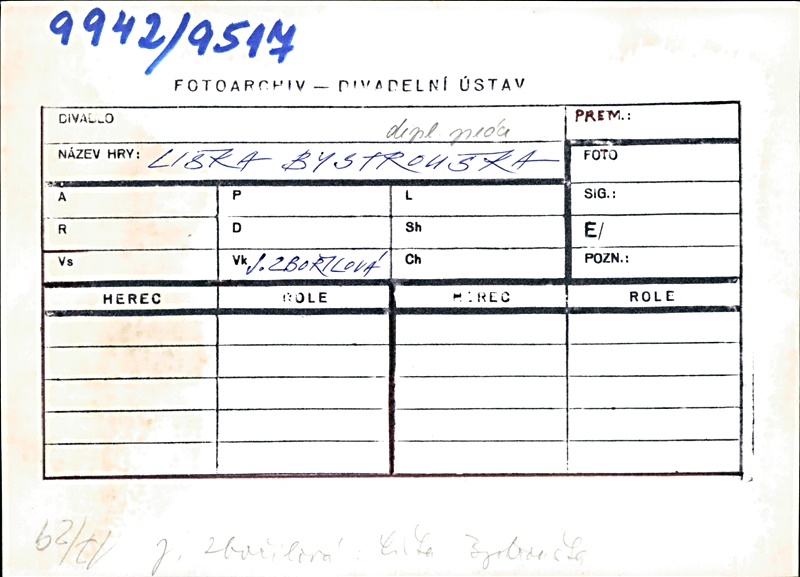 9942/9517
FOTOARCHIV — DIVADELNÍ ÚSTAV
DIVADLO
PREM.:
NÁZEV HRY: LIŠKA BYSTROUŠKA
FOTO
A P L SIG.:
R D Sh E/
Vs Vk J. ZBOŘILOVÁ Ch POZN.:
HEREC ROLE HEREC ROLE
J. Zbořilová: Liška Bystrouška